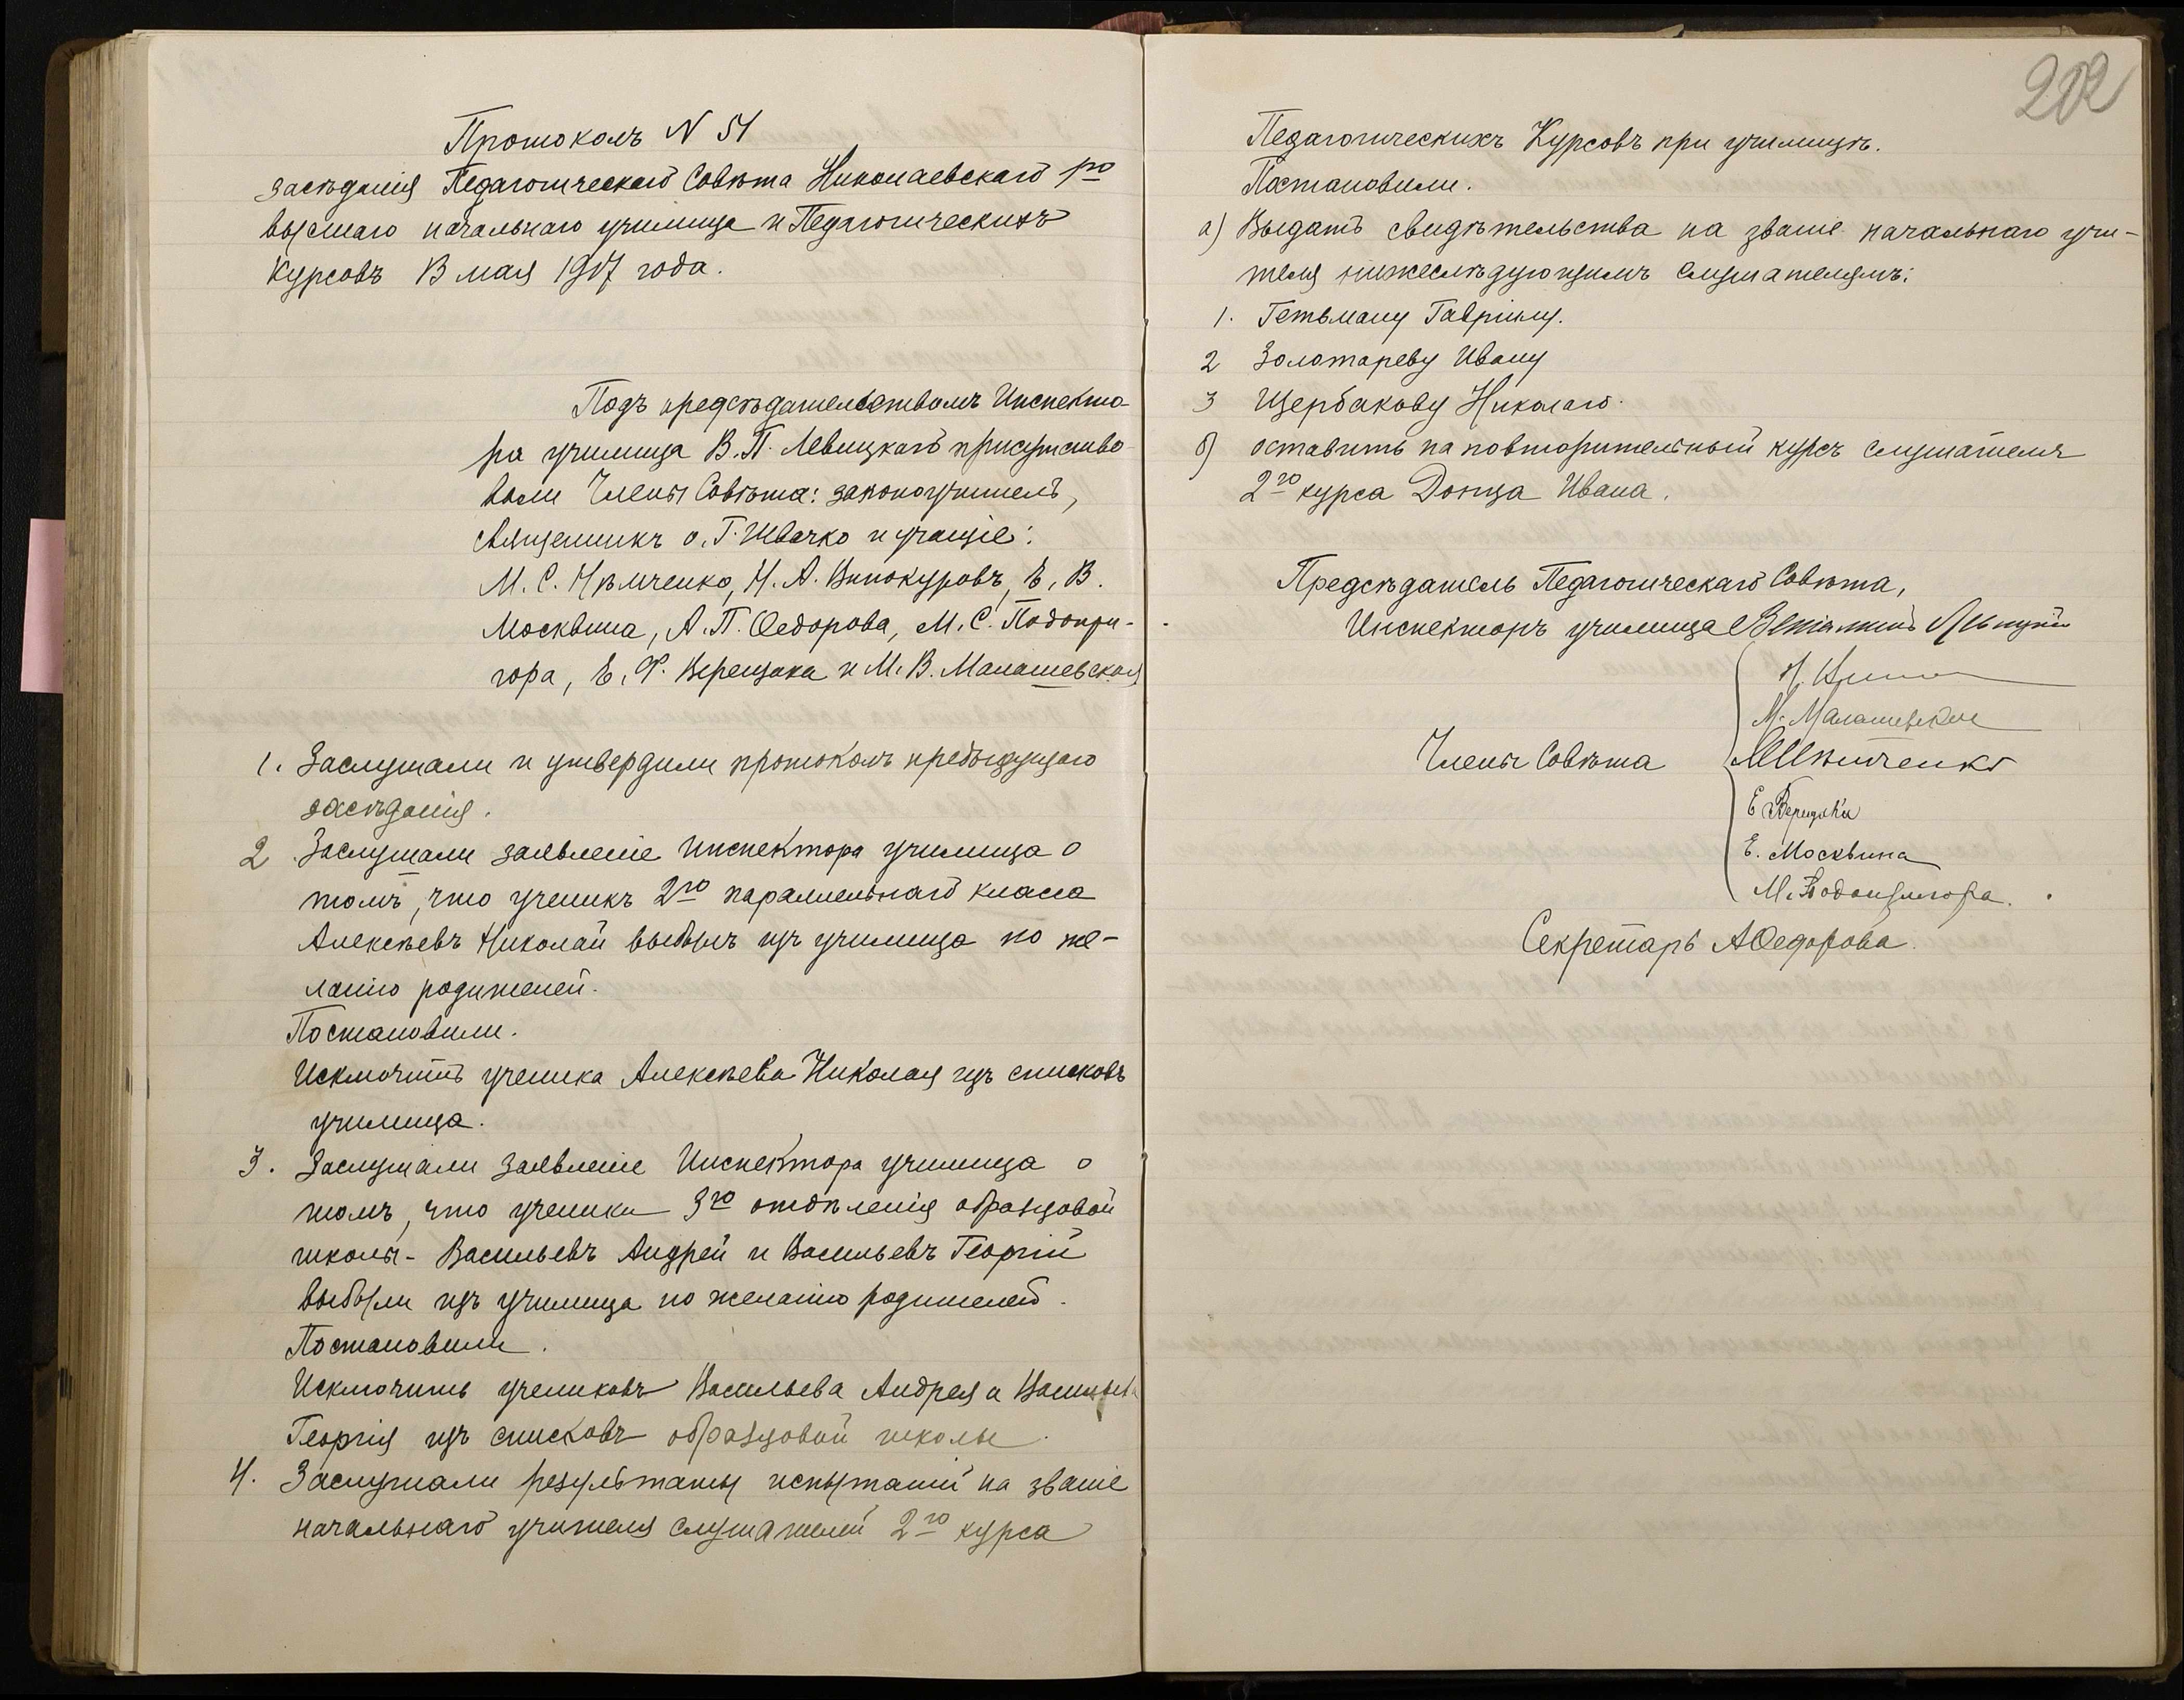 Протоколъ N 51
засѣданія Педагогическаго Совѣта Николаевскаго 1го
высшаго начальнаго училища и Педагогическихъ
Курсовъ 13 мая 1917 года.
Подъ предсѣдательствомъ Инспекто-
ра училища В. П. Левицкаго присутство-
вали Члены Совѣта: законоучитель,
священникъ о. Г. Швачко и учащіе:
М. С. Нѣмченко, Н. А. Винокуровъ, Е. В.
Москвина, А. П. Ѳедорова, М. С. Подопри-
гора, Е. Ф. Верещака и М. В. Малашевская
1. Заслушали и утвердили протоколъ предыдущаго
засѣданія.
2 Заслушали заявленіе Инспектора училища о
томъ, что ученикъ 2го параллельнаго класса
Алексѣевъ Николай выбылъ изъ училища по же-
ланію родителей.
Постановили.
Исключить ученика Алексѣева Николая изъ списковъ
училища.
3. Заслушали заявленіе Инспектора училища о
томъ, что ученики 3го отдѣленія образцовой
школы - Васильевъ Андрей и Васильевъ Георгій
выбыли изъ училища по желанію родителей.
Постановили.
Исключить учениковъ Васильева Андрея и Васильева
Георгія изъ списковъ образцовой школы.
4. Заслушали результаты испытаній на званіе
начальнаго учителя слушателей 2го курса
202
Педагогическихъ Курсовъ при училищѣ.
Постановили.
а) Выдать свидѣтельства на званіе начальнаго учи-
теля нижеслѣдующимъ слушателямъ:
1. Гетьману Гавріилу.
2 Золотареву Ивану
3 Щербакову Николаю.
б) оставить на повторительный курсъ слушателя
2го курса Донца Ивана.
Предсѣдатель Педагогическаго Совѣта,
Инспекторъ училища
М. Малашевская
Члены Совѣта М Нѣмченко
Е Верещака
Е. Москвина
М. Подопригора.
Секретарь А Ѳедорова.